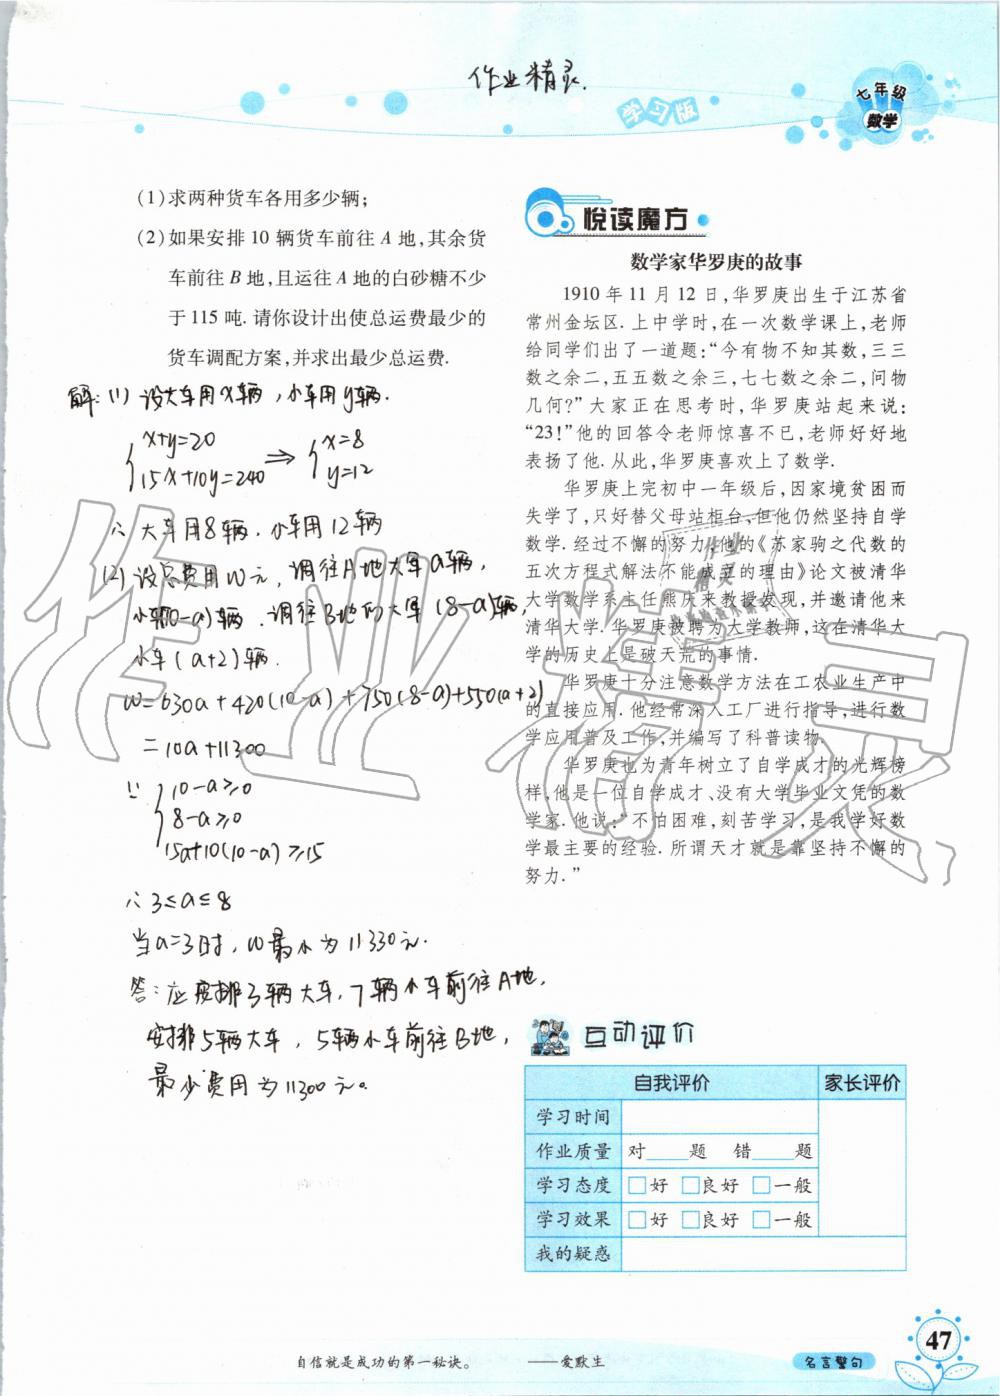 作业精灵.
学习版
七年级
数学
(1)求两种货车各用多少辆;
(2)如果安排 10 辆货车前往 A 地,其余货
车前往 B 地,且运往 A 地的白砂糖不少
于 115 吨. 请你设计出使总运费最少的
货车调配方案,并求出最少总运费.
解:(1) 设大车用x辆,小车用y辆.
x+y=20
15x+10y=240
⇒
x=8
y=12
∴ 大车用8辆.小车用12辆
(2) 设总费用W元,调往A地大车a辆,
小车(10-a)辆.调往B地的大车(8-a)辆,
小车(a+2)辆.
W=630a+420(10-a)+750(8-a)+550(a+2)
=10a+11300
∵
10-a≥0
8-a≥0
15a+10(10-a)≥15
∴3≤a≤8
当a=3时,W最小为11330元.
答:应安排3辆大车,7辆小车前往A地,
安排5辆大车,5辆小车前往B地,
最少费用为11300元。
悦读魔方
数学家华罗庚的故事
1910 年 11 月 12 日,华罗庚出生于江苏省
常州金坛区. 上中学时,在一次数学课上,老师
给同学们出了一道题:“今有物不知其数,三三
数之余二,五五数之余三,七七数之余二,问物
几何?”大家正在思考时,华罗庚站起来说:
“23!”他的回答令老师惊喜不已,老师好好地
表扬了他. 从此,华罗庚喜欢上了数学.
华罗庚上完初中一年级后,因家境贫困而
失学了,只好替父母站柜台,但他仍然坚持自学
数学. 经过不懈的努力,他的《苏家驹之代数的
五次方程式解法不能成立的理由》论文被清华
大学数学系主任熊庆来教授发现,并邀请他来
清华大学. 华罗庚被聘为大学教师,这在清华大
学的历史上是破天荒的事情.
华罗庚十分注意数学方法在工农业生产中
的直接应用. 他经常深入工厂进行指导,进行数
学应用普及工作,并编写了科普读物.
华罗庚也为青年树立了自学成才的光辉榜
样,他是一位自学成才、没有大学毕业文凭的数
学家. 他说:“不怕困难,刻苦学习,是我学好数
学最主要的经验. 所谓天才就是靠坚持不懈的
努力.”
互动评价
自我评价 家长评价
学习时间
作业质量 对____题 错____题
学习态度 □好 □良好 □一般
学习效果 □好 □良好 □一般
我的疑惑
自信就是成功的第一秘诀。 ——爱默生
名言警句
47
作业精灵
作业
精灵